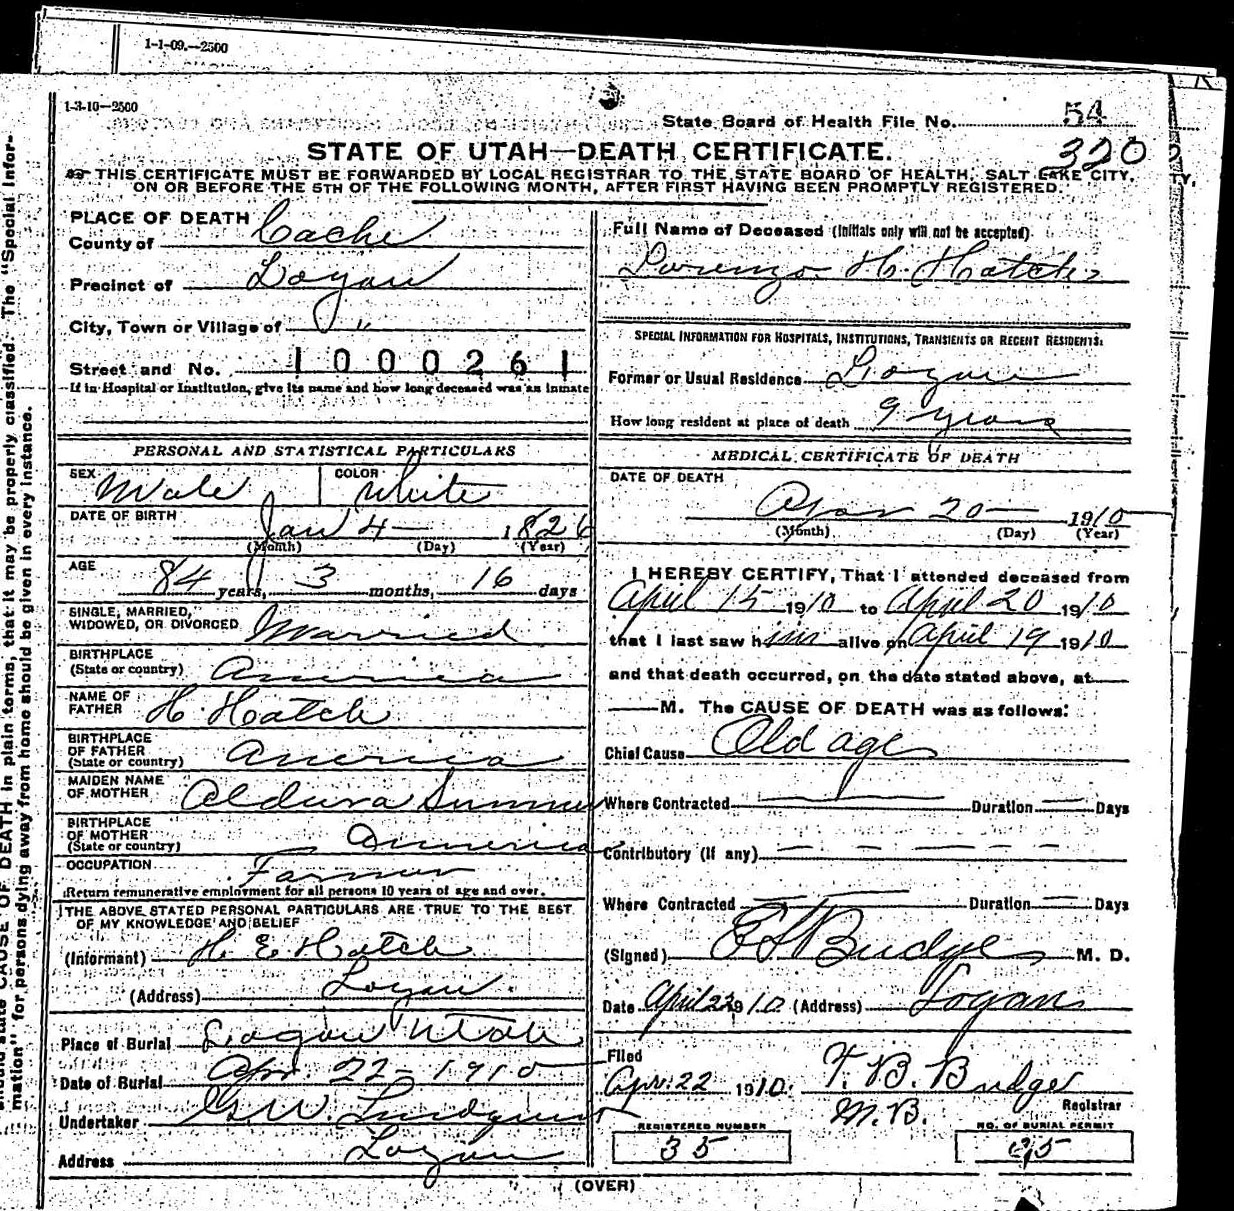 1-1-09.—2500
1-3-10—2500
State Board of Health File No. 54
320
STATE OF UTAH—DEATH CERTIFICATE.
THIS CERTIFICATE MUST BE FORWARDED BY LOCAL REGISTRAR TO THE STATE BOARD OF HEALTH, SALT LAKE CITY,
ON OR BEFORE THE 5TH OF THE FOLLOWING MONTH, AFTER FIRST HAVING BEEN PROMPTLY REGISTERED.
PLACE OF DEATH
County of Cache
Precinct of Logan
City, Town or Village of "
Street and No. 1000261
If in Hospital or Institution, give its name and how long deceased was an inmate
PERSONAL AND STATISTICAL PARTICULARS
SEX Male COLOR White
DATE OF BIRTH Jan 4 1826
(Month) (Day) (Year)
AGE 84 years, 3 months, 16 days
SINGLE, MARRIED,
WIDOWED, OR DIVORCED Married
BIRTHPLACE
(State or country) America
NAME OF
FATHER H. Hatch
BIRTHPLACE
OF FATHER
(State or country) America
MAIDEN NAME
OF MOTHER Aldura Sumner
BIRTHPLACE
OF MOTHER
(State or country) America
OCCUPATION Farmer
Return remunerative employment for all persons 10 years of age and over.
THE ABOVE STATED PERSONAL PARTICULARS ARE TRUE TO THE BEST
OF MY KNOWLEDGE AND BELIEF
(Informant) H. E. Hatch
(Address) Logan
Place of Burial Logan Utah
Date of Burial Apr 22-1910
Undertaker G.W. Lindquist
Address Logan
Full Name of Deceased (Initials only will not be accepted)
Lorenzo H. Hatch
SPECIAL INFORMATION FOR HOSPITALS, INSTITUTIONS, TRANSIENTS OR RECENT RESIDENTS:
Former or Usual Residence Logan
How long resident at place of death 9 years
MEDICAL CERTIFICATE OF DEATH
DATE OF DEATH
Apr 20 1910
(Month) (Day) (Year)
I HEREBY CERTIFY, That I attended deceased from
April 15 1910 to April 20 1910
that I last saw him alive on April 19 1910
and that death occurred, on the date stated above, at
M. The CAUSE OF DEATH was as follows:
Chief Cause Old age
Where Contracted Duration Days
Contributory (If any)
Where Contracted Duration Days
(Signed) Budge M. D.
Date April 1910 (Address) Logan
Filed
Apr. 22 1910. T. B. Budge
M.B. Registrar
REGISTERED NUMBER
35
NO. OF BURIAL PERMIT
35
(OVER)
OF DEATH in plain terms, that it may be properly classified. The "Special Infor-
mation" for persons dying away from home should be given in every instance.